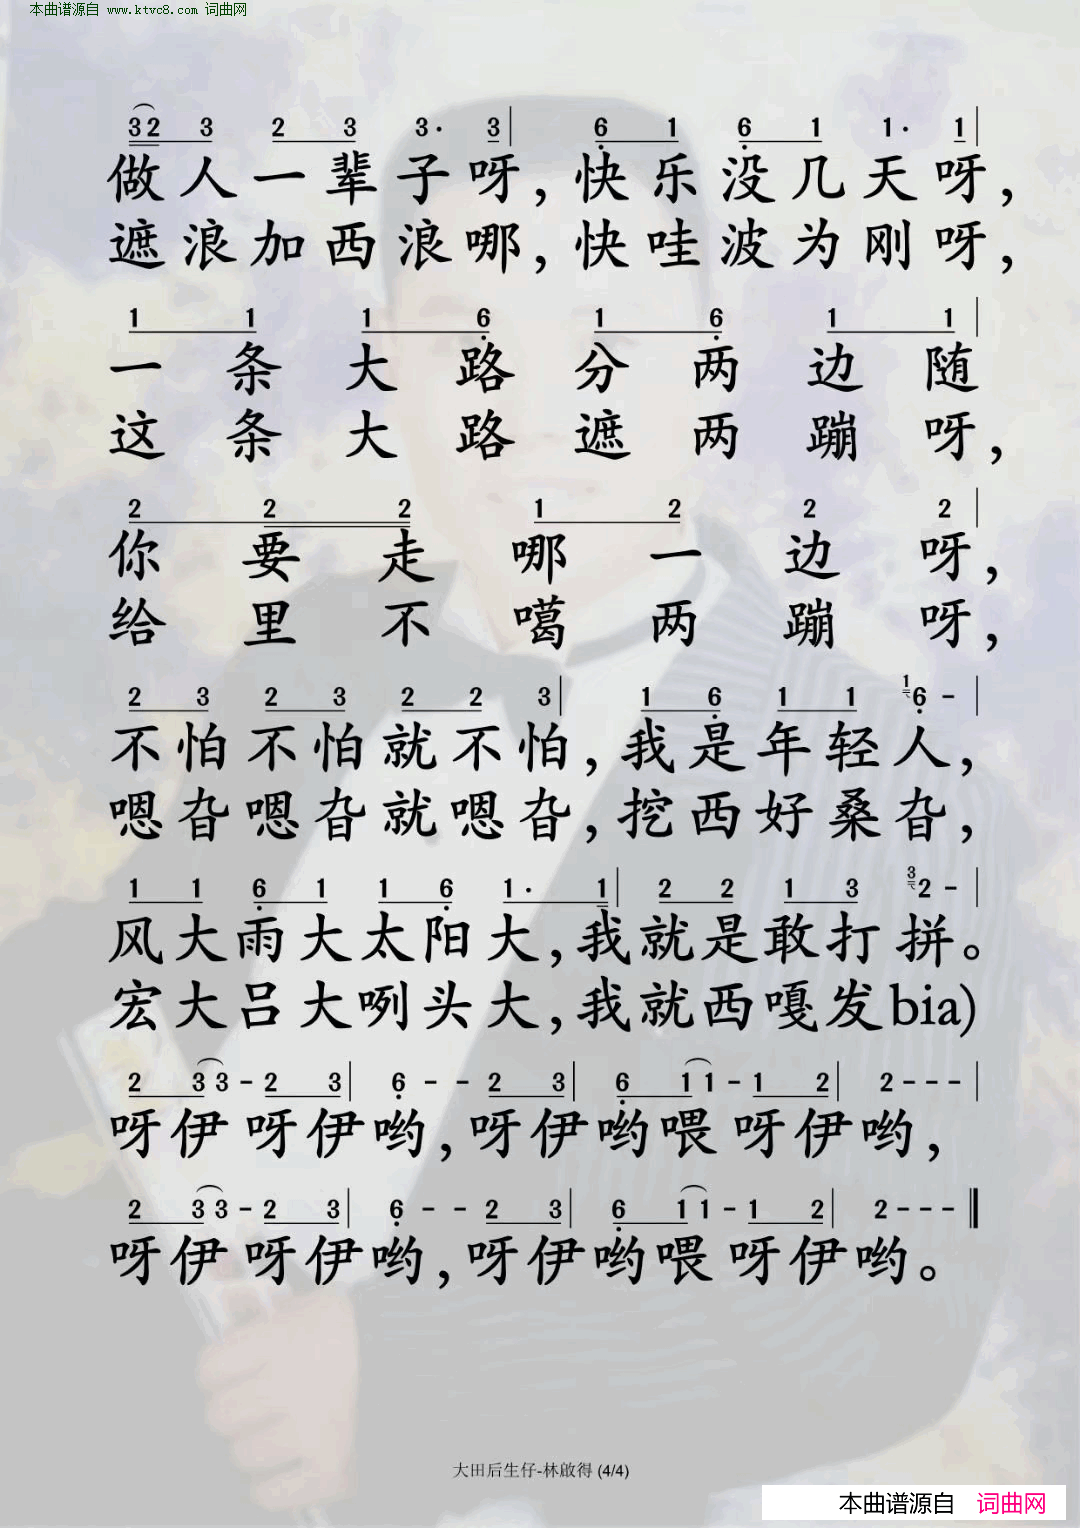 本曲谱源自 www.ktvc8.com 词曲网
32 3 2 3 3· 3 | 6 1 6 1 1· 1 |
做人一辈子呀，快乐没几天呀，
遮浪加西浪哪，快哇波为刚呀，
1 1 1 6 1 6 1 1 |
一条大路分两边随
这条大路遮两蹦呀，
2 2 2 1 2 2 2 |
你要走哪一边呀，
给里不噶两蹦呀，
2 3 2 3 2 2 3 | 1 6 1 1 1 6 - |
不怕不怕就不怕，我是年轻人，
嗯旮嗯旮就嗯旮，挖西好桑旮，
1 1 6 1 1 6 1· 1 | 2 2 1 3 3 2 - |
风大雨大太阳大，我就是敢打拼。
宏大吕大咧头大，我就西嘎发bia)
2 3 3 - 2 3 | 6 - - 2 3 | 6 1 1 - 1 2 | 2 - - - |
呀伊呀伊哟，呀伊哟喂呀伊哟，
2 3 3 - 2 3 | 6 - - 2 3 | 6 1 1 - 1 2 | 2 - - - ||
呀伊呀伊哟，呀伊哟喂呀伊哟。
大田后生仔-林啟得 (4/4)
本曲谱源自 词曲网